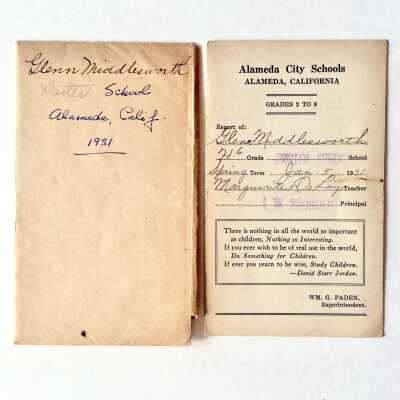 Glenn Middlesworth
Porter School
Alameda, Calif.
1931
Alameda City Schools
ALAMEDA, CALIFORNIA
GRADES 2 TO 8
Report of:
Glenn Middlesworth
Grade School
Spring Term Jan. 5, 1931
Marguerite Teacher
Principal
There is nothing in all the world so important
as children, Nothing so Interesting.
If you ever wish to be of real use in the world,
Do Something for Children.
If ever you yearn to be wise, Study Children.
—David Starr Jordan.
WM. G. PADEN,
Superintendent.